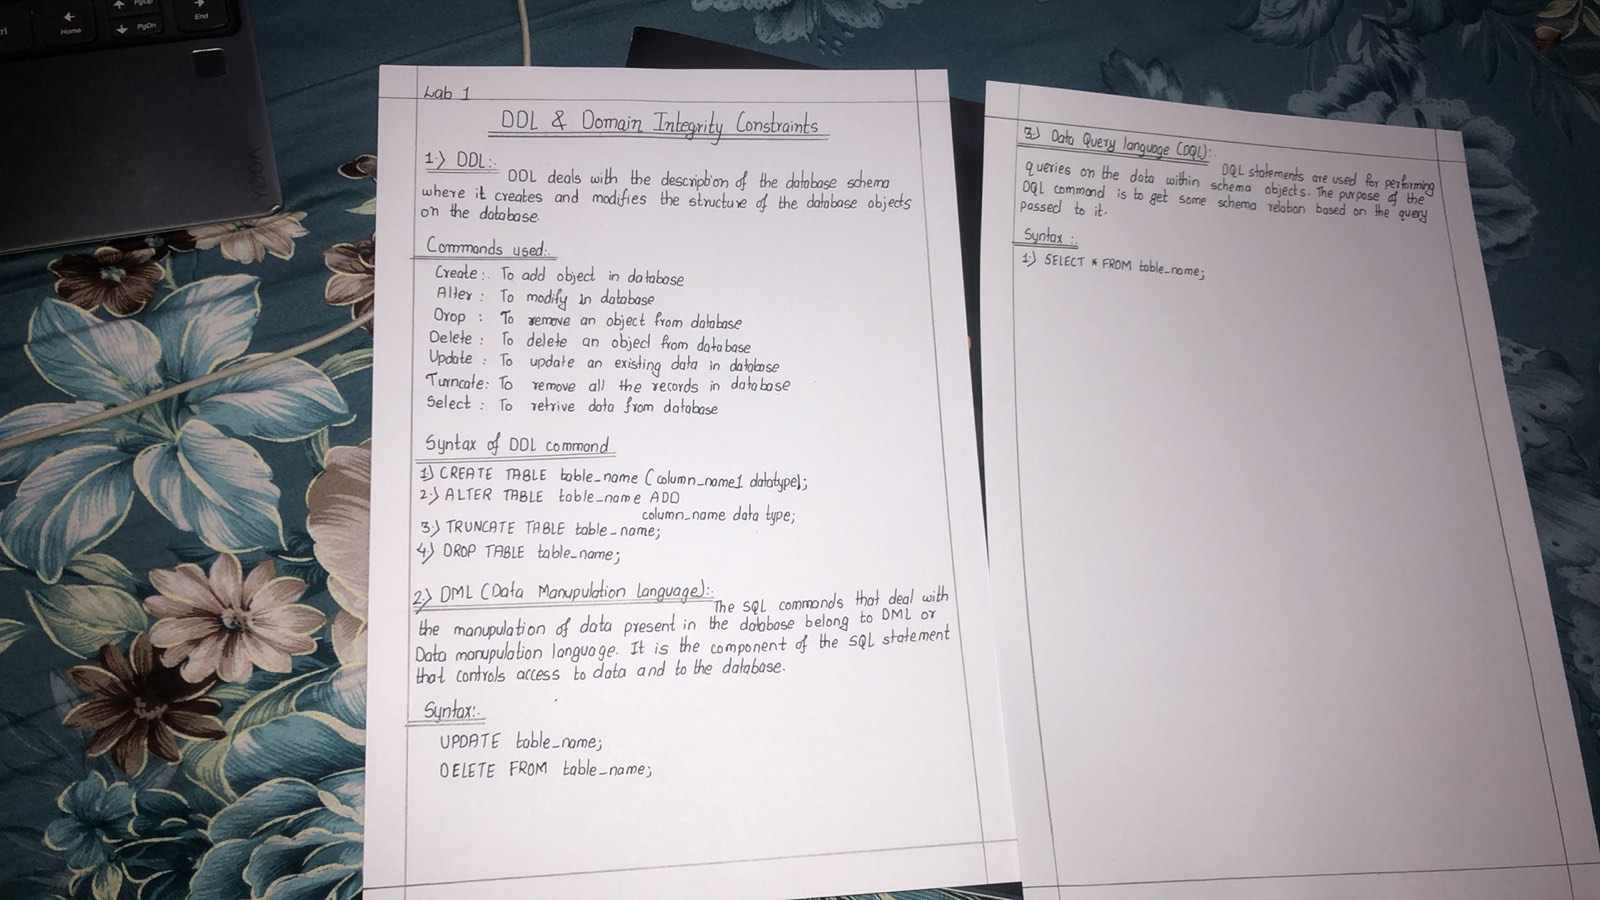 PgUp
Home
PgDn
End
Lab 1
DDL & Domain Integrity Constraints
1.) DDL:.
DDL deals with the description of the database schema
where it creates and modifies the structure of the database objects
on the database.
Commands used:.
Create:. To add object in database
Alter : To modify in database
Drop : To remove an object from database
Delete : To delete an object from database
Update : To update an existing data in database
Turncate: To remove all the records in database
Select : To retrive data from database
Syntax of DDL command
1) CREATE TABLE table_name (column_name1 datatype);
2.) ALTER TABLE table_name ADD
column_name data type;
3.) TRUNCATE TABLE table_name;
4.) DROP TABLE table_name;
2.) DML (Data Manupulation Language):.
The SQL commands that deal with
the manupulation of data present in the database belong to DML or
Data manupulation language. It is the component of the SQL statement
that controls access to data and to the database.
Syntax:.
UPDATE table_name;
DELETE FROM table_name;
3.) Data Query language (DQL):.
DQL statements are used for performing
queries on the data within schema objects. The purpose of the
DQL command is to get some schema relation based on the query
passed to it.
Syntax :.
1.) SELECT * FROM table_name;